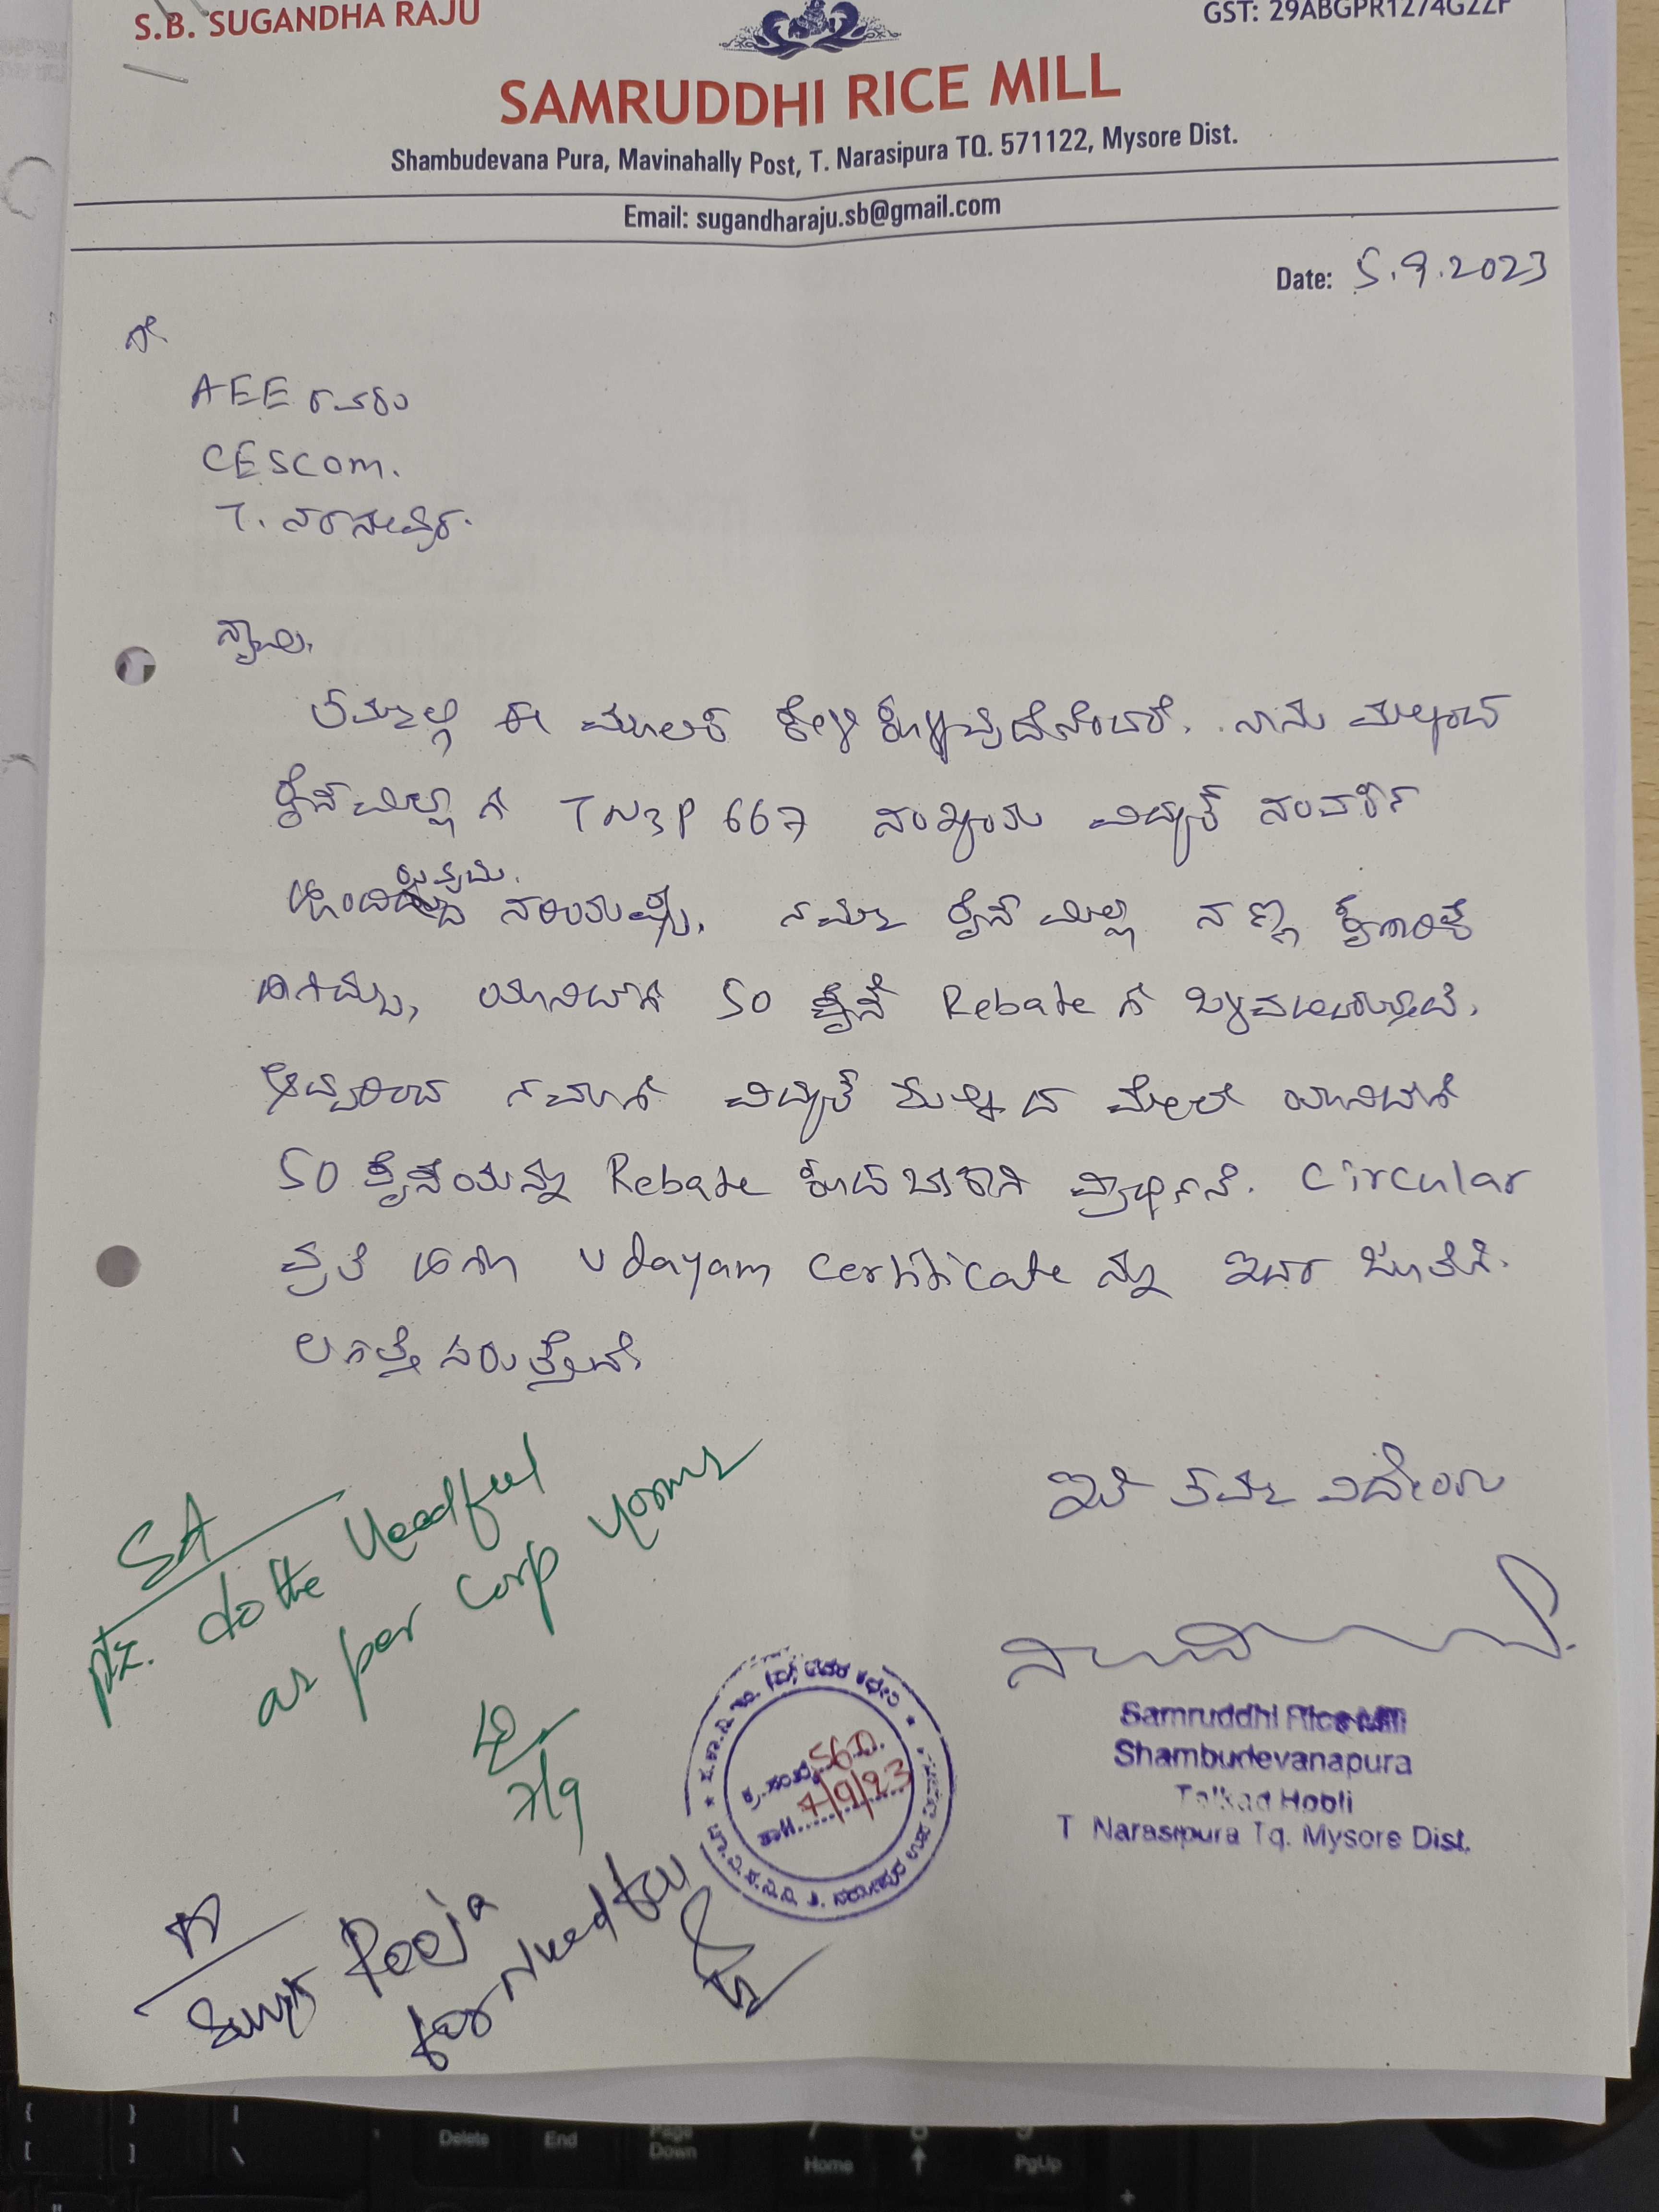 S.B. SUGANDHA RAJU
GST: 29ABGPR1274G2ZF
SAMRUDDHI RICE MILL
Shambudevana Pura, Mavinahally Post, T. Narasipura TQ. 571122, Mysore Dist.
Email: sugandharaju.sb@gmail.com
Date: 5.9.2023
ಗೆ
AEE ರವರು
CESCOM.
T. ನರಸೀಪುರ.
ಸ್ವಾಮಿ,
ತಮ್ಮಲ್ಲಿ ಈ ಮೂಲಕ ಕೇಳಿಕೊಳ್ಳುವುದೇನೆಂದರೆ, ನಾನು
ರೈಸ್ ಮಿಲ್ಲಿಗೆ TN3P 667 ಸಂಖ್ಯೆಯ ವಿದ್ಯುತ್ ಸಂಪರ್ಕ
ಹೊಂದಿರುತ್ತೇನೆ. ಸರಿಯಷ್ಟೆ, ನಮ್ಮ ರೈಸ್ ಮಿಲ್ಲು ಸಣ್ಣ ಕೈಗಾರಿಕೆ
ಆಗಿದ್ದು, ಯೂನಿಟ್‌ಗೆ 50 ಪೈಸೆ Rebate ಗೆ
ಆದ್ದರಿಂದ ನಮಗೆ ವಿದ್ಯುತ್ ಶುಲ್ಕದ ಮೇಲೆ ಯೂನಿಟ್‌ಗೆ
50 ಪೈಸೆಯನ್ನು Rebate ಕೊಡಬೇಕಾಗಿ ಪ್ರಾರ್ಥನೆ. Circular
ಪ್ರತಿ ಹಾಗೂ Udayam Certificate ನ್ನು ಇದರ ಜೊತೆಗೆ.
ಲಗತ್ತಿಸಿರುತ್ತೇನೆ.
ಇತಿ ತಮ್ಮ ವಿಧೇಯ
SA
plz. do the needful
as per Corp norms
7/9
560
7/9/23
Samruddhi Rice Mill
Shambudevanapura
Talkad Hobli
T Narasipura Tq. Mysore Dist.
Pooja
for needful
Delete End Page Down Home PgUp